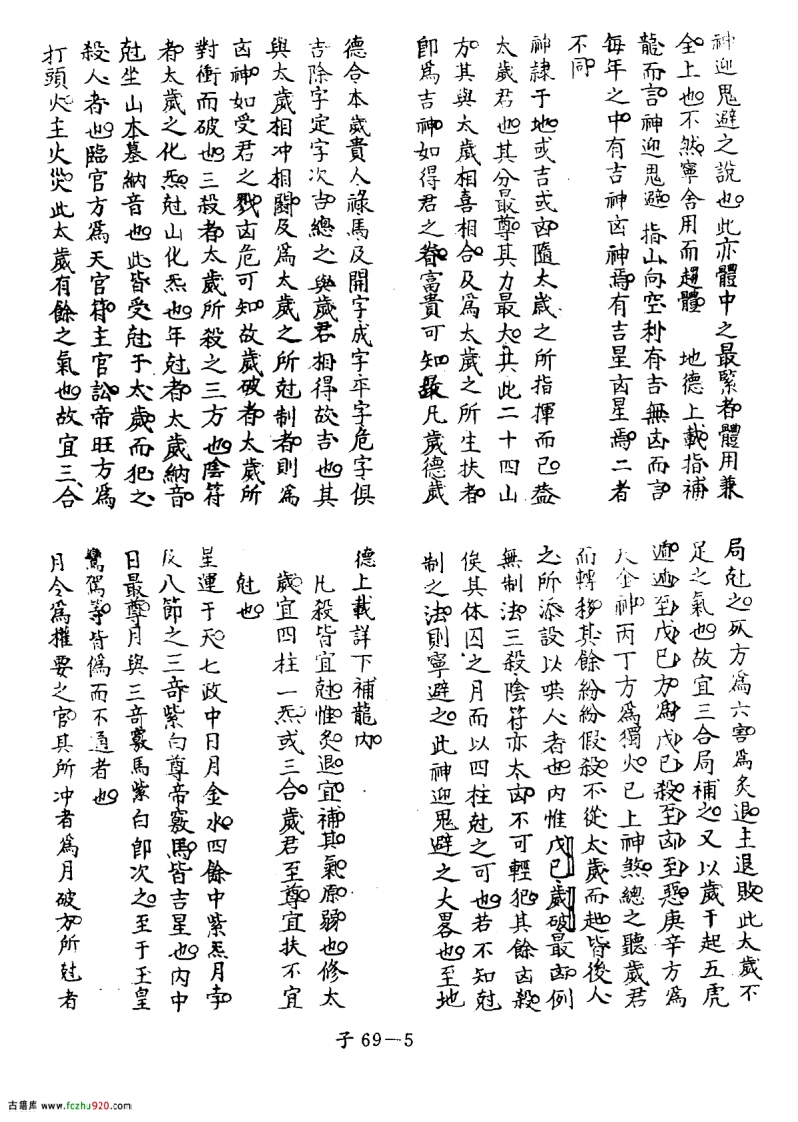 神迎鬼避之說也此亦體中之最緊者體用兼
全上也不然寧舍用而趨體 地德上載指補
龍而言神迎鬼避 指山向空利有吉無凶而言
每年之中有吉神凶神焉有吉星凶星焉二者
不同
神隷于地或吉或凶隨太歲之所指揮而已葢
太歲君也其分最尊其力最大共此二十四山
方其與太歲相喜相合及爲太歲之所生扶者
卽爲吉神如得君之眷富貴可知故凡歲德歲
德合本歲貴人祿馬及開字成字平字危字俱
吉除字定字次吉總之與歲君相得故吉也其
與太歲相冲相鬪及爲太歲之所尅制者則爲
凶神如受君之戮凶危可知故歲破者太歲所
對衝而破也三殺者太歲所殺之三方也陰符
者太歲之化炁尅山化炁也年尅者太歲納音
尅坐山本墓納音也此皆受尅于太歲而犯之
殺人者也臨官方爲天官符主官訟帝旺方爲
打頭火主火災此太歲有餘之氣也故宜三合
局尅之死方爲六害爲炙退主退敗此太歲不
足之氣也故宜三合局補之又以歲干起五虎
遁遁至戊巳方爲戊巳殺至凶至惡庚辛方爲
天金神丙丁方爲獨火已上神煞總之聽歲君
而轉移其餘紛紛假殺不從太歲而起皆後人
之所添設以哄人者也内惟戊巳歲破最凶例
無制法三殺陰符亦太凶不可輕犯其餘凶殺
俟其休囚之月而以四柱尅之可也若不知尅
制之法則寧避之此神迎鬼避之大畧也至地
德上載詳下補龍内
凡殺皆宜尅惟炙退宜補其氣原弱也修太
歲宜四柱一炁或三合歲君至尊宜扶不宜
尅也
星運于天七政中日月金水四餘中紫炁月孛
及八節之三奇紫白尊帝竅馬皆吉星也内中
日最尊月與三奇竅馬紫白卽次之至于玉皇
鸞駕等皆僞而不通者也
月令爲權要之官其所冲者爲月破方所尅者
子69—5
古籍库 www.fczhu920.com